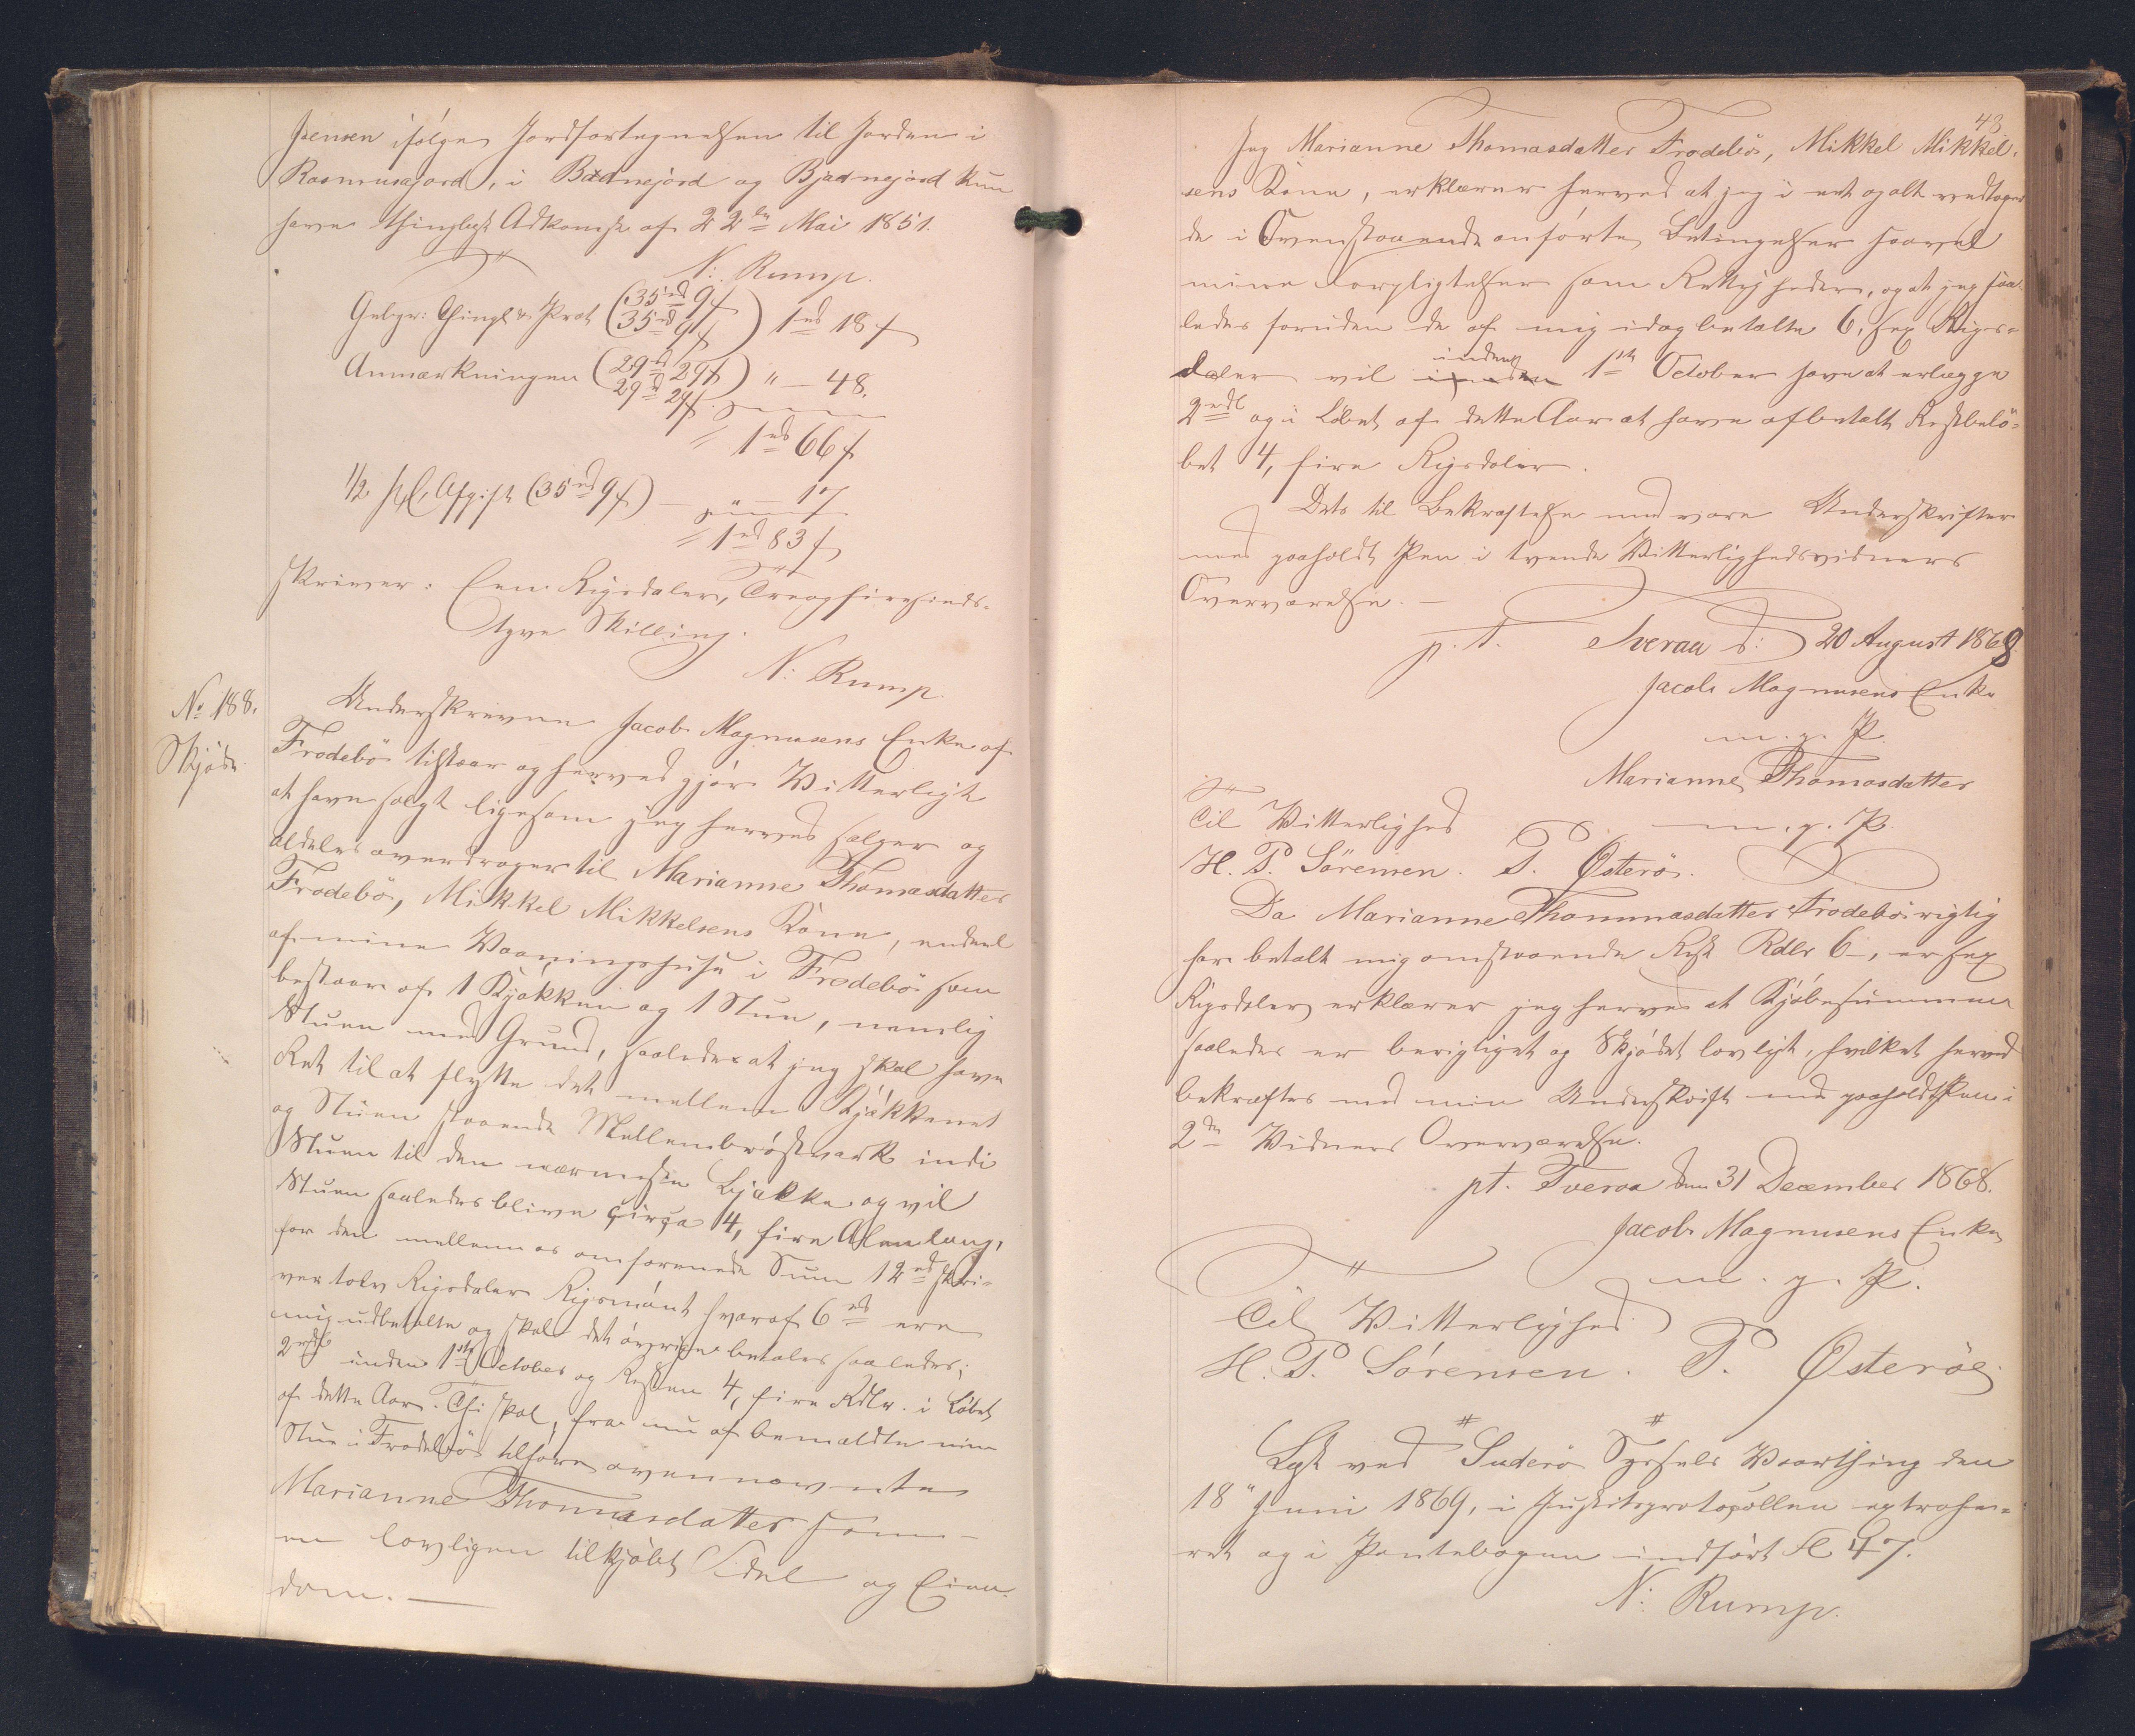 Joensen ifølge Jordfortegnelsen til Jorden i
Rasmusajord, i Bædnejord og Bjædnejord kun
have thinglyst Adkomst af 22de Mai 1851.
N: Rump.
Gebyr: Thingl & Prot (35rd 9ß 35rd 9ß) 1rd 18ß
Anmærkningen (29rd 29ß 29rd 29ß) " – 48.
1rd 66ß
1/2 pCt Afgift (35rd 9ß) — " – 17
1rd 83ß
skriver: Een Rigsdaler, Treogfiresinds-
tyve Skilling.
N: Rump.
No 188.
Skjøde
Underskrevne Jacob Magnusens Enke af
Frodebö tilstaar og herved gjör Vitterligt
at have solgt ligesom jeg herved sælger og
aldeles overdrager til Marianne Thomasdatter
Frodebö, Mikkel Mikkelsens Kone, endeel
af mine Vaaningshuse i Frodebö som
bestaar af 1 Kjøkken og 1 Stue, nemlig
Stuen med Grund, saaledes at jeg skal have
Ret til at flytte det mellem Kjøkkenet
og Stuen staaende Mellembröstværk ind i
Stuen til den nærmeste Bjælke og vil
Stuen saaledes blive circa 4, fire Alen lang,
for den mellem os omforenede Sum 12rd skri-
ver tolv Rigsdaler Rigsmönt hvoraf 6rd ere
mig udbetalte og skal det övrige betales saaledes;
2rdl inden 1ste October og Resten 4, fire Rdlr. i Löbet
af dette Aar. Thi skal, fra nu af bemældte min
Stue i Frodebö tilhöre ovennævnte
Marianne Thomasdatter som
en lovligen tilkjöbt Odel og Eien-
dom. —
43
Jeg Marianne Thomasdatter Frodebö, Mikkel Mikkel-
sens Kone, erklærer herved at jeg i eet og alt vedtager
de i Ovenstaaende anförte Betingelser saavel
mine Forpligtelser som Rettigheder, og at jeg saa-
ledes foruden de af mig idag betalte 6, sex Rigs-
daler vil inden 1ste October have at erlægge
2rdl og i Löbet af dette Aar at have afbetalt Restbelö-
bet 4, fire Rigsdaler.
Dets til Bekræftelse med vore Underskrifter
med paaholdt Pen i tvende Vitterlighedsvidners
Overværelse. —
p. t. Tveraa d: 20 August 1868
Jacob Magnusens Enke
m. p. P.
Marianne Thomasdatter
m. p. P.
Til Vitterlighed
H. P. Sörensen. P. Østerö.
Da Marianne Thommasdatter Frodebö rigtig
har betalt mig omstaaende Rest Rdlr 6–, er sex
Rigsdaler erklærer jeg herved at Kjöbesummen
saaledes er berigtiget og Skjödet lovligt, hvilket herved
bekræftes med min Underskrift med paaholdt Pen i
2de Vidners Overværelse.
pt. Tveraa den 31 December 1868.
Jacob Magnusens Enke
m. p. P.
Til Vitterlighed
H. P. Sörensen. P. Østeröe
Læst ved Suderö Syssels Vaarthing den
18" Juni 1869, i Justitsprotocollen extrahe-
ret og i Pantebogen indfört Fl 47.
N: Rump.